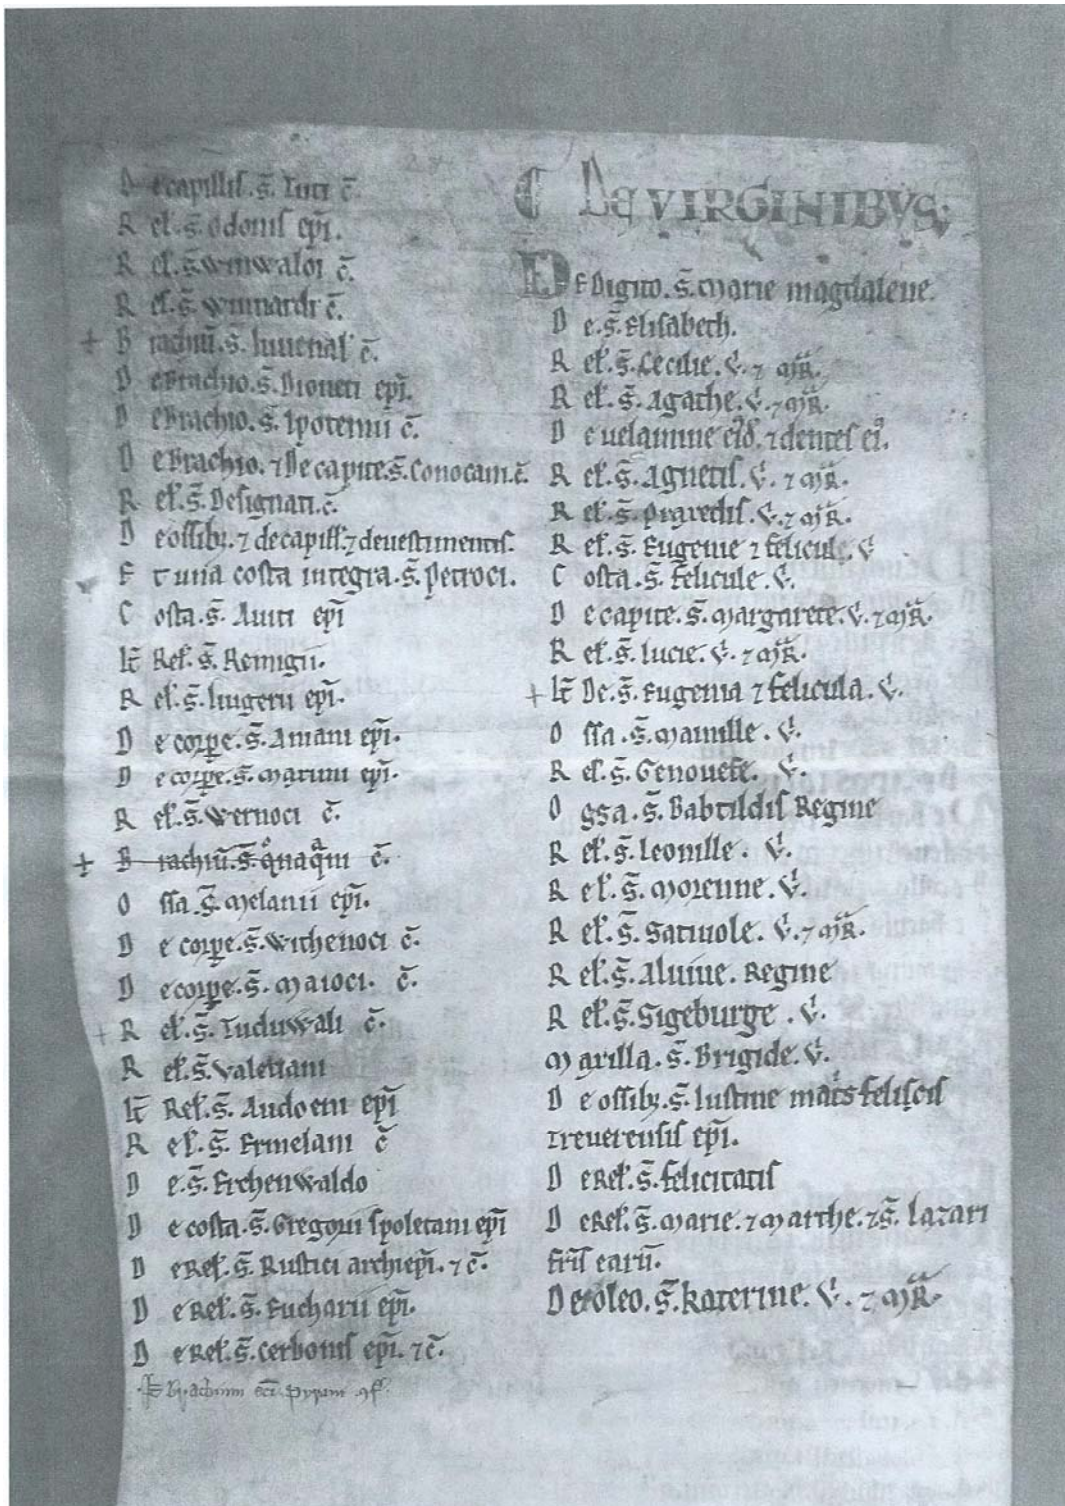 D e capillis. s̄. Luci c̄.
R el̄. s̄. Odonis ep̄i.
R el̄. s̄. Winwaloi c̄.
R el̄. s̄. Winnardi c̄.
+ B rachiū. s̄. Iuuenal' c̄.
D e Brachio. s̄. Dioneti ep̄i.
D e Brachio. s̄. Ipotemii c̄.
D e Brachio. ⁊ De capite. s̄. Conocani. c̄.
R el̄. s̄. Designati. c̄.
D e ossibꝫ. ⁊ de capill'. ⁊ de uestimentis.
E t una costa integra. s̄. Petroci.
C osta. s̄. Auiti ep̄i
It̄ Rel̄. s̄. Remigii.
R el̄. s̄. Liugerii ep̄i.
D e corpe. s̄. Amani ep̄i.
D e corpe. s̄. Martini ep̄i.
R el̄. s̄. Wernoci c̄.
+ B rachiū. s̄. c̄.
O ssa. s̄. Melanii ep̄i.
D e corpe. s̄. Withenoci c̄.
D e corpe. s̄. Maioci. c̄.
+ R el̄. s̄. Tuduwali c̄.
R el̄. s̄. Valeriani
It̄ Rel̄. s̄. Audoeni ep̄i
R el̄. s̄. Ermelani c̄
D e. s̄. Erchenwaldo
D e costa. s̄. Gregorii spoletani ep̄i
D e Rel̄. s̄. Rustici archiep̄i. ⁊ c̄.
D e Rel̄. s̄. Eucharii ep̄i.
D e Rel̄. s̄. Cerbonis ep̄i. ⁊ c̄.
It̄ Brachium sc̄i pyrani
C De VIRGINIBVS;
D E Digito. s̄. Marie magdalene.
D e. s̄. Elisabeth.
R el̄. s̄. Cecilie. v̄. ⁊ mr̄.
R el̄. s̄. Agathe. v̄. ⁊ mr̄.
D e uelamine ei'd. ⁊ dentes ei'.
R el̄. s̄. Agnetis. v̄. ⁊ mr̄.
R el̄. s̄. Praxedis. v̄. ⁊ mr̄.
R el̄. s̄. Eugenie ⁊ felicule. v̄
C osta. s̄. felicule. v̄.
D e capite. s̄. Margarete. v̄. ⁊ mr̄.
R el̄. s̄. Lucie. v̄. ⁊ mr̄.
+ It̄ De. s̄. Eugenia ⁊ felicula. v̄.
O ssa. s̄. Mamille. v̄.
R el̄. s̄. Genouefe. v̄.
O ssa. s̄. Babtildis Regine
R el̄. s̄. Leonille. v̄.
R el̄. s̄. Morenne. v̄.
R el̄. s̄. Satiuole. v̄. ⁊ mr̄.
R el̄. s̄. Aluiue. Regine
R el̄. s̄. Sigeburge. v̄.
M axilla. s̄. Brigide. v̄.
D e ossibꝫ. s̄. Iustine mat's feliscis
treuerensis ep̄i.
D e Rel̄. s̄. felicitatis
D e Rel̄. s̄. Marie. ⁊ Marthe. ⁊ s̄. Lazari
fr̄is earū.
D e oleo. s̄. katerine. v̄. ⁊ mr̄.